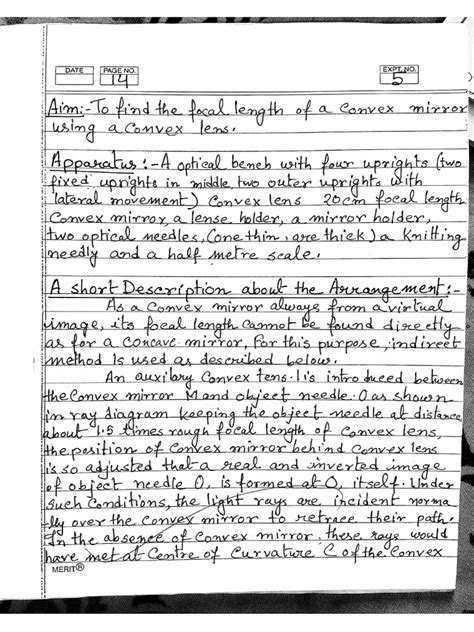 DATE PAGE NO. EXPT. NO.
14 5
Aim:- To find the focal length of a convex mirror
using a convex lens.
Apparatus :- A optical bench with four uprights (two
fixed uprights in middle, two outer uprights with
lateral movement) Convex lens 20cm focal length
Convex mirror, a lense holder, a mirror holder,
two optical needles, (one thin, are thick) a Knitting
needly and a half metre scale.
A short Description about the Arrangement:-
As a Convex mirror always from a virtual
image, its focal length cannot be found directly
as for a concave mirror, For this purpose, indirect
method is used as described below.
An auxilary Convex tens. L is introduced between
the Convex mirror M and object needle. O as shown
in ray diagram keeping the object needle at distance
about 1.5 times rough focal length of Convex lens,
the position of convex mirror behind convex lens
is so adjusted that a real and inverted image
of object needle O, is formed at O, itself. Under
such Conditions, the light rays are incident norma
-lly over the convex mirror to retrace their path.
In the absence of Convex mirror, these rays would
have met at Centre of Curvature C of the Convex
MERIT®